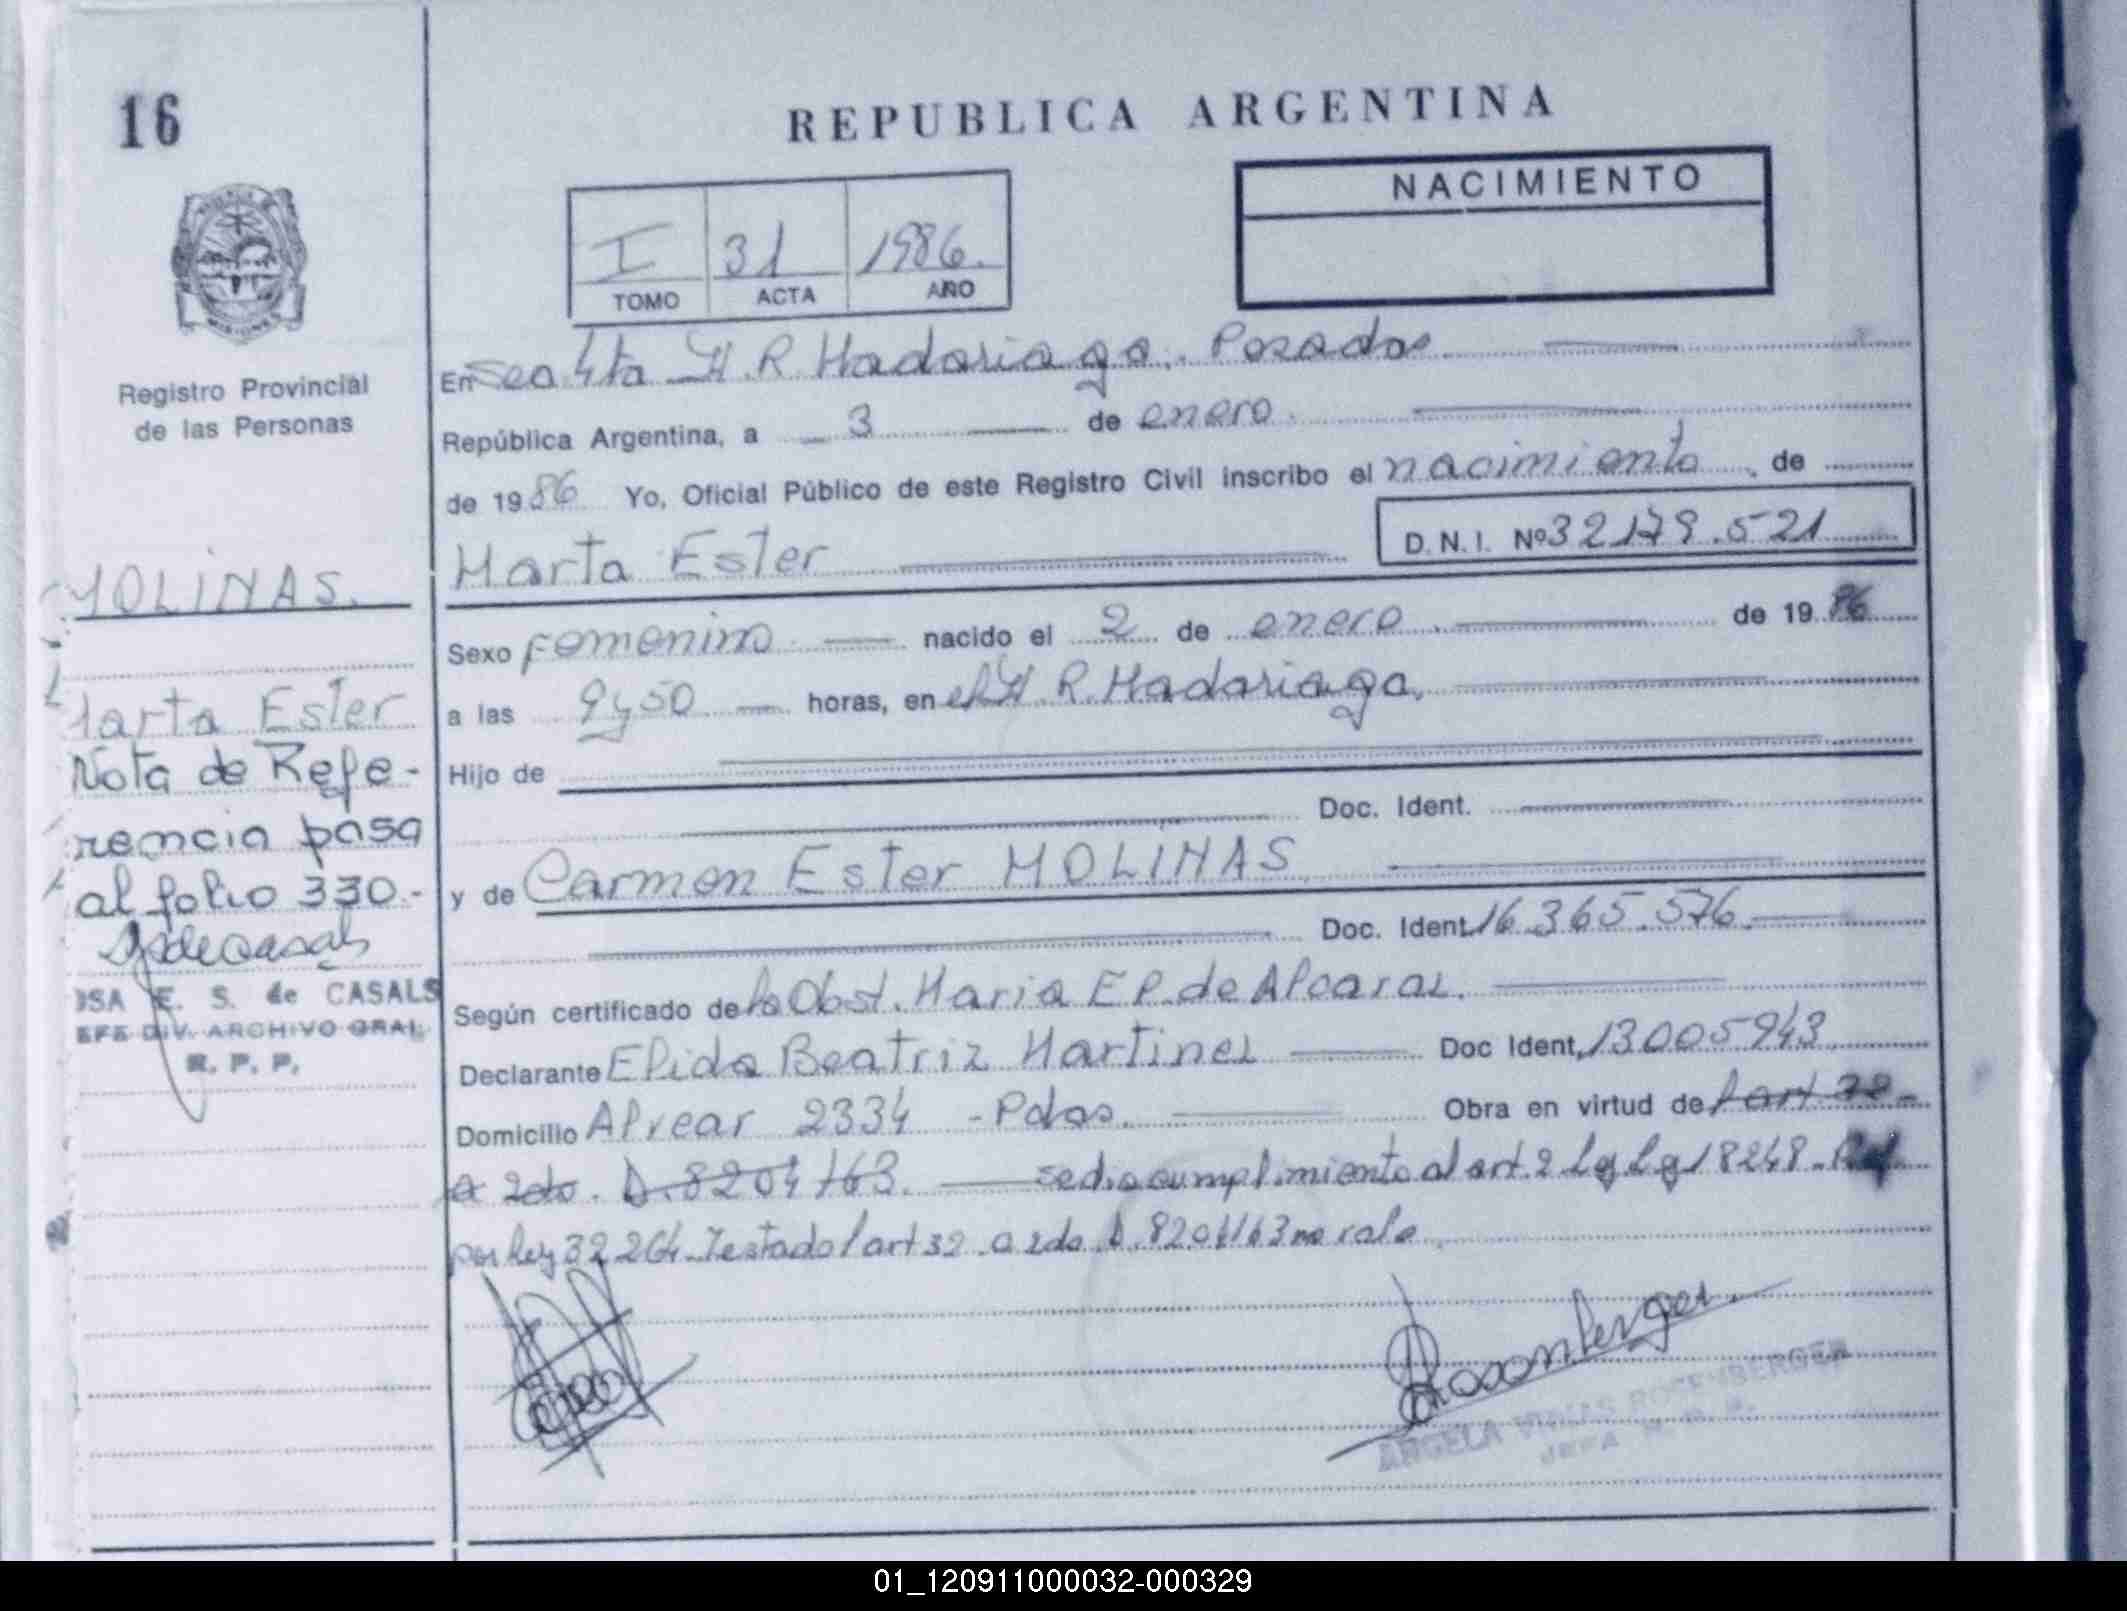 16
REPUBLICA ARGENTINA
NACIMIENTO
I 31 1986.
TOMO ACTA AÑO
Registro Provincial
de las Personas
En Secc 4ta H. R. Madariaga. Posadas
República Argentina, a 3 de enero.
de 1986 Yo, Oficial Público de este Registro Civil inscribo el nacimiento, de
Marta Ester D. N. I. Nº 32179.521
MOLINAS.
Marta Ester
Nota de Refe-
rencia pasa
al folio 330.-
E. S. de CASALS
DIV. ARCHIVO GRAL.
R. P. P.
Sexo femenino nacido el 2 de enero. de 1986
a las 9 y 50 horas, en el H. R. Madariaga.
Hijo de
Doc. Ident.
y de Carmen Ester MOLINAS
Doc. Ident. 16.365.576.
Según certificado de la Obst. Maria E P. de Alcaraz.
Declarante Elida Beatriz Martinez Doc Ident, 13005943.
Domicilio Alvear 2334 - Pdas. Obra en virtud de l art 32-
a 2do. D. 8204/63. se dio cumplimiento al art. 2 Lg 18248.
por Ley 32264. Testado l art 32. a 2do. D. 8204/63 no vale.
Rosemberger
ANGELA ROSEMBERGER
JEFA R. P. P.
01_120911000032-000329